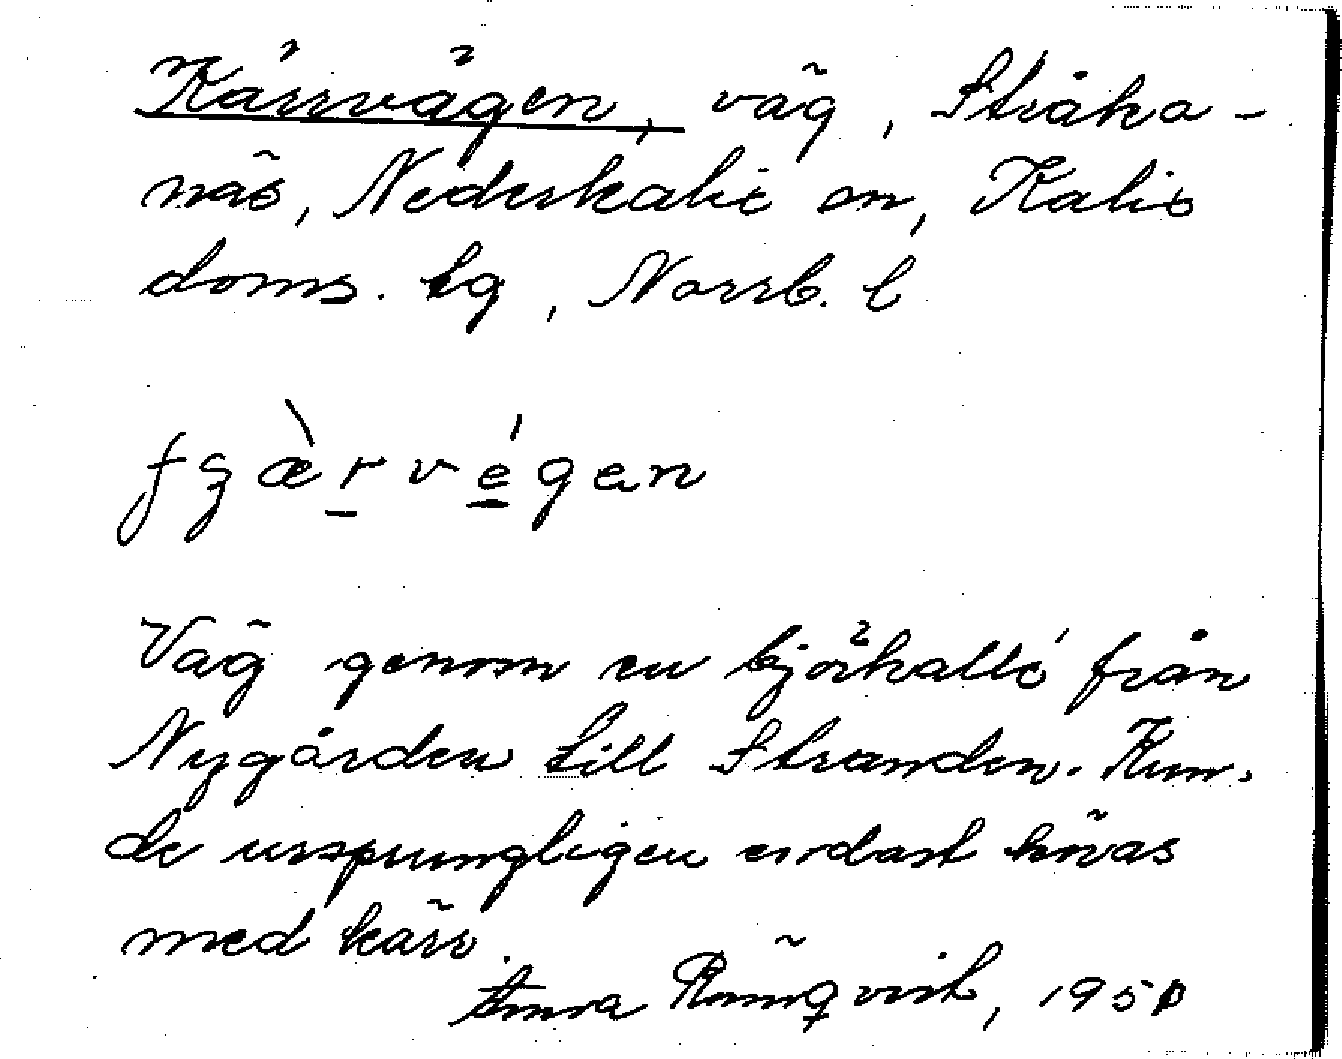 Kärrvägen, väg, Stråka-
näs, Nederkalix sn, Kalix
doms. lg, Norrb. l
Väg genom en björkallé från
Nygården till Stranden. Kun-
de ursprungligen endast köras
med kärr.
Anna Rönqvist, 1950